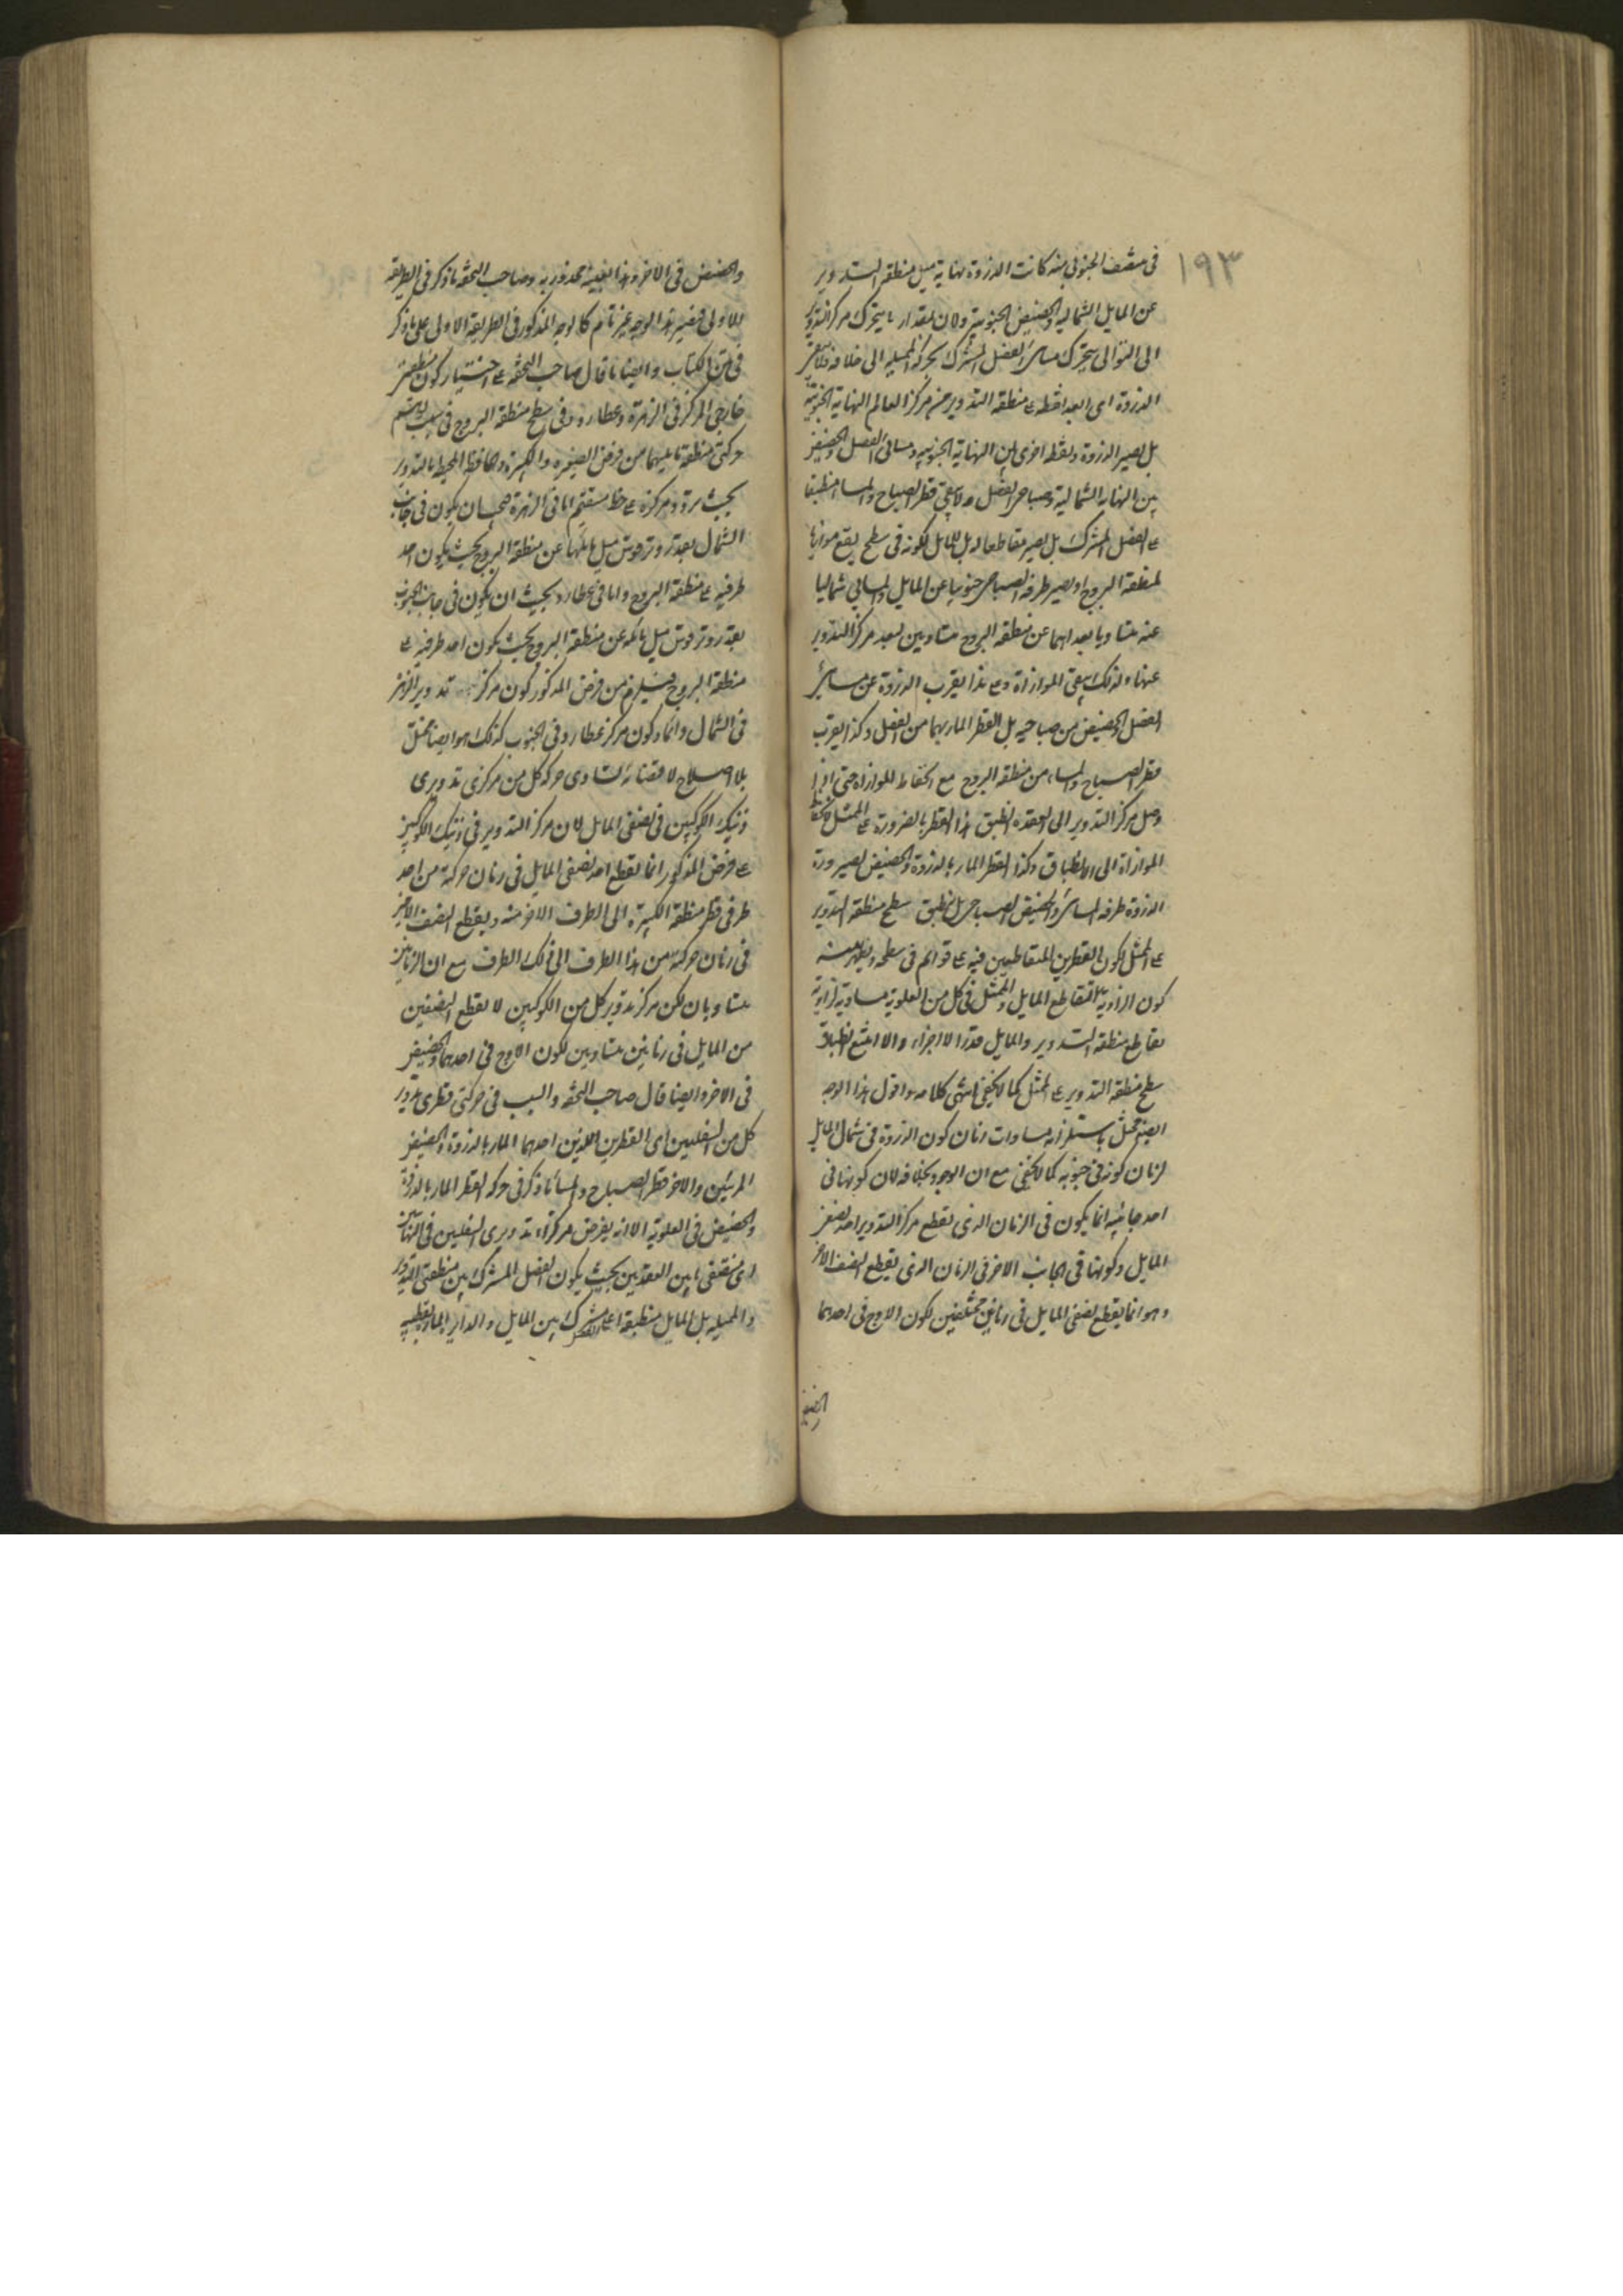 ١٩٣
في منتصف الجنوبي منه كانت الذروة نهاية ميل منطقة التدوير
عن المايل الشمالية والحضيض الجنوبية ولان بمقدار ما يتحرك مركز التدوير
الى التوالي يتحرك مسائي الفضل المشترك بحركة المميلة الى خلافه فلا
الذروة اى ابعد نقطة ع منطقة التدوير من مركز العالم النهاية الجنوبية
بل تصير الذروة ونقطة اخرى بين النهاية الجنوبية ومسائي الفضل والحضيض
بين النهاية الشمالية وصباحي الفضل ولا يبقى قطر الصباح والمسا منطبقا
ع الفضل المشترك بل يصير مقاطعا له بل للمايل لكونه في سطح يقع موازيا
لمنطقة البروج او يصير طرفه الصباحي جنوبيا عن المايل والمسائي شماليا
عنه متساويا بعداهما عن منطقة البروج متساويين لبعد مركز التدوير
عنها ولذلك يبقى الموازاة وع هذا يقرب الذروة عن مسائي
الفضل والحضيض من صباحيه بل القطر المار بهما من الفضل وكذا يقرب
قطر الصباح والمساء من منطقة البروج مع انحفاظ الموازاة حتى اذا
وصل مركز التدوير الى العقدة انطبق هذا القطر بالضرورة ع الممثل
الموازاة الى الانطباق وكذا القطر المار بالذروة والحضيض لصيرورة
الذروة طرفه المسائي والحضيض الصباحي بل ينطبق سطح منطقة التدوير
ع الممثل لكون القطرين المتقاطعين فيه ع قوائم في سطحه ويظهر منه
كون الزاوية التقاطع المايل والممثل في كل من العلوية مساوية لزاوية
تقاطع منطقة التدوير والمايل قدرا لا اجزاء والا امتنع انطباق
سطح منطقة التدوير ع الممثل كما لا يخفى انتهى كلامه واقول هذا الوجه
ايضا مختل باستلزامه مساوات زمان كون الذروة في شمال المايل
لزمان كونه في جنوبه كما لا يخفى مع ان الوجود بخلافه لان كونها في
احد جانبيه انما يكون في الزمان الذي يقطع مركز التدوير احد نصفي
المايل وكونها في الجانب الاخر في الزمان الذي يقطع النصف الاخر
وهو انما يقطع نصفي المايل في زمانين مختلفين لكون الاوج في احدهما
والحضيض في الاخر وهذا بعينه محذور به وصاحب التحفة ما ذكر في الطريقة
الاولى فيصير هذا الوجه غير تام كالوجه المذكور في الطريقة الاولى على ما ذكر
في متن الكتاب وايضا ما قال صاحب التحفة ع اختيار كون منطقتي
خارجي المركز في الزهرة وعطارد وفي سطح منطقة البروج في
حركتي منطقة مايليهما من فرض الصغيرة والكبيرة والحافظة المحيط بالتدوير
بحيث مركزه ع خط مستقيم اما في الزهرة يكون في جانب
الشمال بعد تر وتر قوس ميل مايلها عن منطقة البروج بحيث يكون احد
طرفيه ع منطقة البروج واما في عطارد بحيث ان يكون في جانب الجنوب
بعد وتر قوس ميل مايله عن منطقة البروج بحيث يكون احد طرفيه ع
منطقة البروج فيلزم من فرض المذكور كون مركز تدوير الزهرة
في الشمال دائما وكون مركز عطارد في الجنوب كذلك هو ايضا مختل
بلا اصلاح لاقتضائه لتساوى حركة كل من مركزى تدويرى
ذينك الكوكبين في نصفي المايل لان مركز التدوير في ذينك الكوكبين
ع فرض المذكور انما يقطع احد نصفي المايل في زمان حركته من احد
طرفي قطر منطقة الكبيرة الى الطرف الاخر منه ويقطع النصف الاخر
في زمان حركته من هذا الطرف الى ذلك الطرف مع ان الزمانين
متساويان لكن مركز تدوير كل من الكوكبين لا يقطع النصفين
من المايل في زمانين متساويين لكون الاوج في احدهما والحضيض
في الاخر وايضا قال صاحب التحفة والسبب في حركتي قطرى تدوير
كل من السفليين اى القطرين اللذين احدهما المار بالذروة والحضيض
المرئيين والاخر قطر الصباح والمسا ما ذكر في حركة القطر المار بالذروة
والحضيض في العلوية الا انه يفرض مركزاء تدويرى السفليين في
اى منتصفي ما بين العقدتين بحيث يكون الفضل المشترك بين منطقتي التدوير
والمميلة بل المايل منطبقة ع بين المايل والدايرة المارة بقطبيه
الحضيض